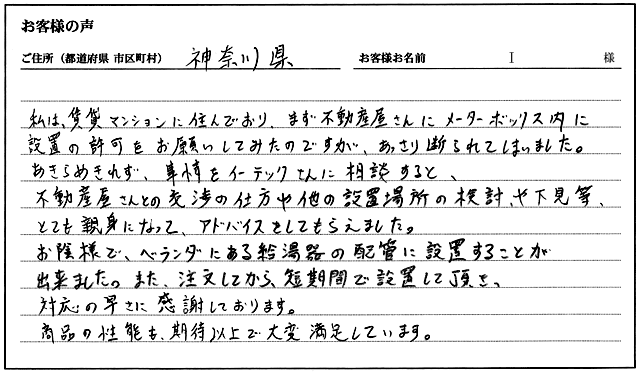 お客様の声
ご住所（都道府県 市区町村） 神奈川県 お客様お名前 I 様
私は、賃貸マンションに住んでおり、まず不動産屋さんにメーターボックス内に
設置の許可をお願いしてみたのですが、あっさり断られてしまいました。
あきらめきれず、事情をイーテックさんに相談すると、
不動産屋さんとの交渉の仕方や他の設置場所の検討、や下見等、
とても親身になって、アドバイスをしてもらえました。
お陰様で、ベランダにある給湯器の配管に設置することが
出来ました。また、注文してから、短期間で設置して頂き、
対応の早さに感謝しております。
商品の性能も、期待以上で大変満足しています。